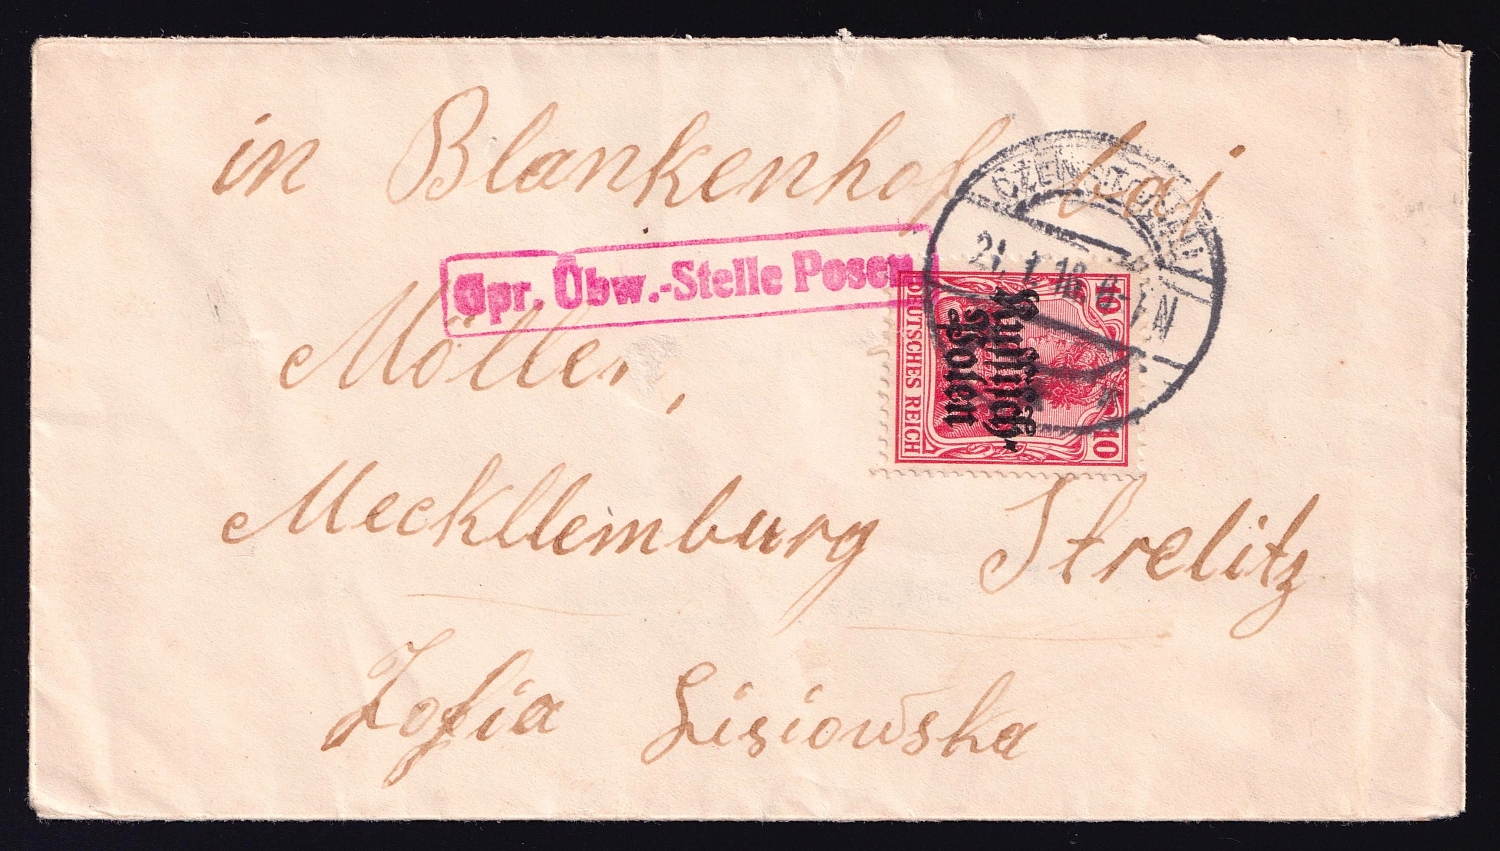 in Blankenhof bai
Gpr. Übw.-Stelle Posen
CZENSTOCHAU
21.1.16.
10
10
DEUTSCHES REICH
Russisch-
Polen
Möller,
Meckllemburg Strelitz
Zofia Lisiowska